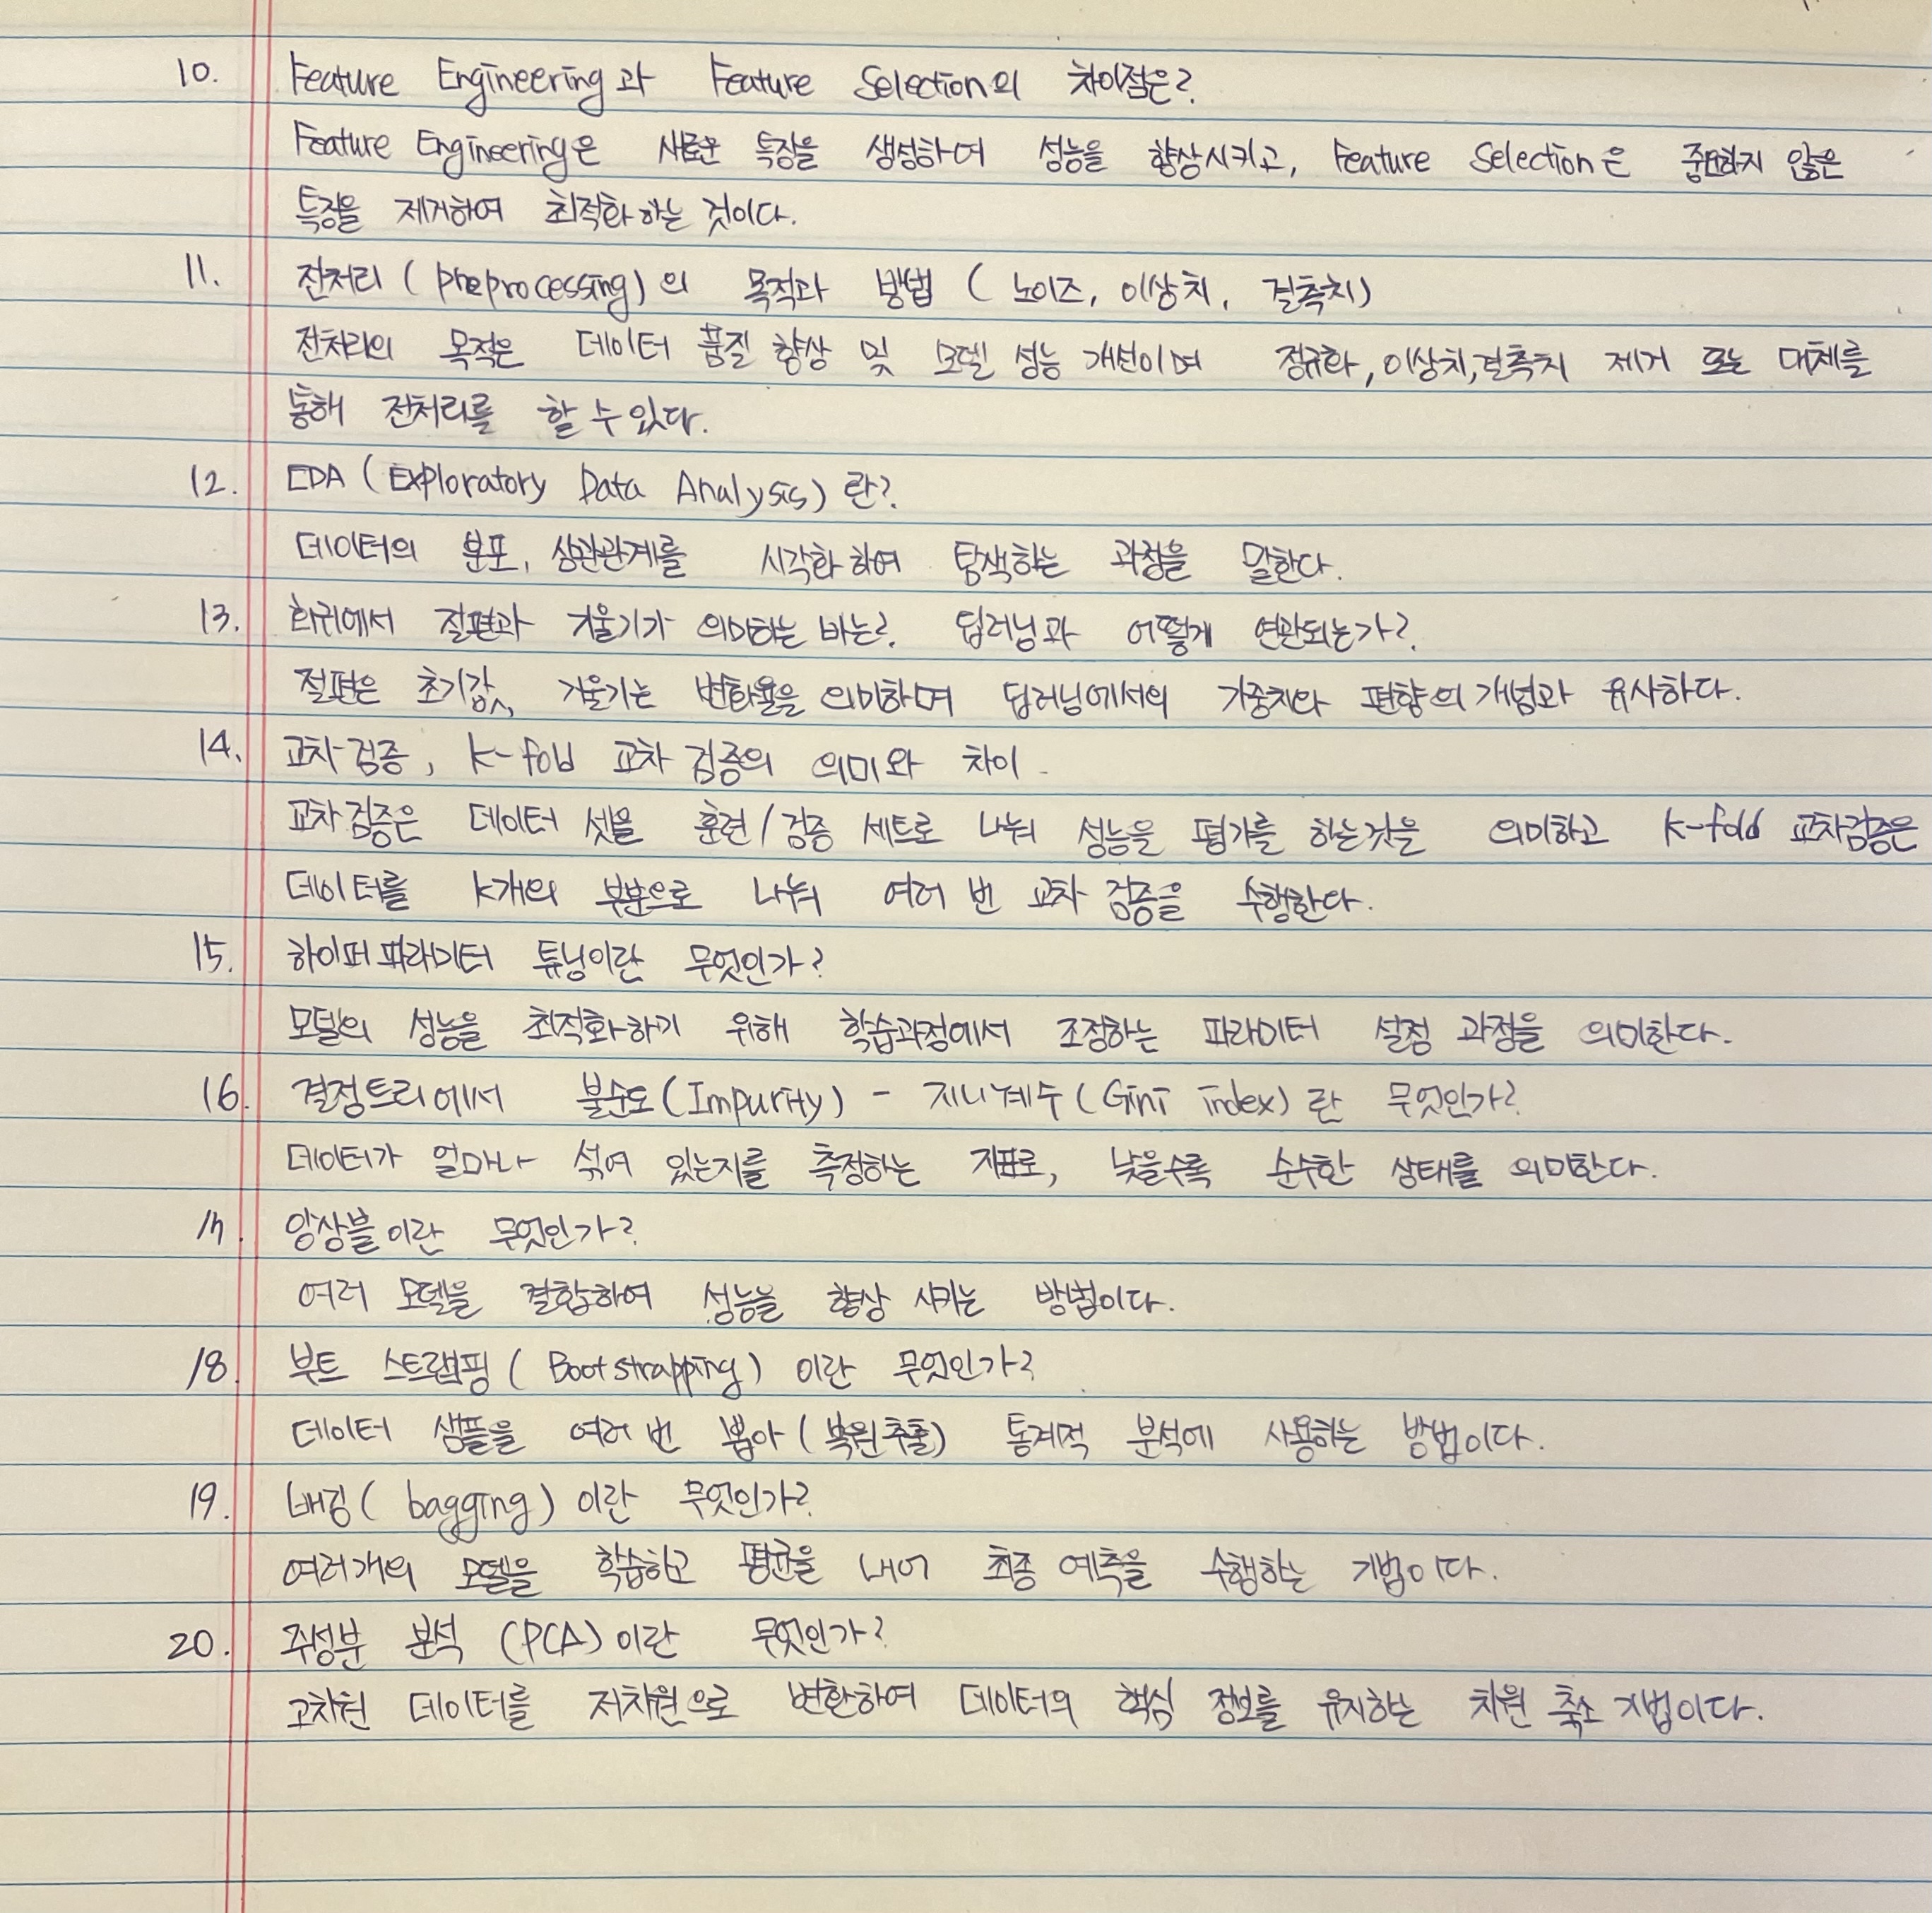 10. Feature Engineering과 Feature Selection의 차이점은?
Feature Engineering은 새로운 특징을 생성하여 성능을 향상시키고, Feature Selection은 중요하지 않은
특징을 제거하여 최적화하는 것이다.
11. 전처리 (preprocessing)의 목적과 방법 (노이즈, 이상치, 결측치)
전처리의 목적은 데이터 품질 향상 및 모델 성능 개선이며 정규화, 이상치, 결측치 제거 또는 대체를
통해 전처리를 할 수 있다.
12. EDA (Exploratory Data Analysis)란?
데이터의 분포, 상관관계를 시각화하여 탐색하는 과정을 말한다.
13. 회귀에서 절편과 기울기가 의미하는 바는? 딥러닝과 어떻게 연관되는가?
절편은 초기값, 기울기는 변화율을 의미하며 딥러닝에서의 가중치와 편향의 개념과 유사하다.
14. 교차 검증, K-fold 교차 검증의 의미와 차이.
교차 검증은 데이터 셋을 훈련/검증 세트로 나눠 성능을 평가를 하는것을 의미하고 K-fold 교차검증은
데이터를 K개의 부분으로 나눠 여러 번 교차 검증을 수행한다.
15. 하이퍼 파라미터 튜닝이란 무엇인가?
모델의 성능을 최적화하기 위해 학습과정에서 조정하는 파라미터 설정 과정을 의미한다.
16. 결정트리에서 불순도(Impurity) - 지니계수(Gini index)란 무엇인가?
데이터가 얼마나 섞여 있는지를 측정하는 지표로, 낮을수록 순수한 상태를 의미한다.
17. 앙상블이란 무엇인가?
여러 모델을 결합하여 성능을 향상 시키는 방법이다.
18. 부트 스트랩핑 (Bootstrapping) 이란 무엇인가?
데이터 샘플을 여러 번 뽑아 (복원 추출) 통계적 분석에 사용하는 방법이다.
19. 배깅 (bagging) 이란 무엇인가?
여러개의 모델을 학습하고 평균을 내어 최종 예측을 수행하는 기법이다.
20. 주성분 분석 (PCA) 이란 무엇인가?
고차원 데이터를 저차원으로 변환하여 데이터의 핵심 정보를 유지하는 차원 축소 기법이다.